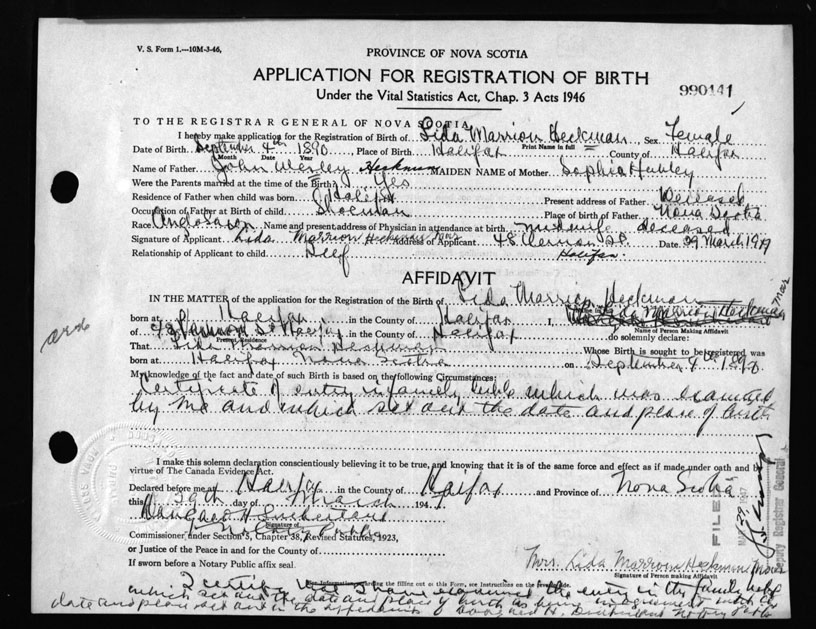 V. S. Form 1.—10M-3-46,
PROVINCE OF NOVA SCOTIA
APPLICATION FOR REGISTRATION OF BIRTH
990141
Under the Vital Statistics Act, Chap. 3 Acts 1946
TO THE REGISTRAR GENERAL OF NOVA SCOTIA
I hereby make application for the Registration of Birth of Lida Marrion Heckman Sex Female
Print Name in full
Date of Birth September 4th 1890 Place of Birth Halifax County of Halifax
Month Date Year
Name of Father John Wesley Heckman MAIDEN NAME of Mother Sophia Hubley
Were the Parents married at the time of the Birth? Yes
Residence of Father when child was born Halifax Present address of Father Deceased
Occupation of Father at Birth of child Place of birth of Father Nova Scotia
Race Name and present address of Physician in attendance at birth midwife deceased
Signature of Applicant Lida Marrion Heckman Address of Applicant 48 St. Date 29 March 19
Relationship of Applicant to child Self Halifax
AFFIDAVIT
IN THE MATTER of the application for the Registration of Birth of Lida Marrion Heckman
born at Halifax in the County of Halifax Lida Marrion Heckman
Name of Person Making Affidavit
of 48 St Halifax in the County of Halifax do solemnly declare:
Present, Residence
That Lida Marrion Heckman Whose Birth is sought to be registered was
born at Halifax Nova Scotia on September 4th 1890
My knowledge of the fact and date of such Birth is based on the following Circumstances:
Certificate of entry in family bible which was examined
by me and which set out the date and place of birth
I make this solemn declaration conscientiously believing it to be true, and knowing that it is of the same force and effect as if made under oath and by
virtue of The Canada Evidence Act.
Declared before me at Halifax in the County of Halifax and Province of Nova Scotia
this 29th day of March 194
Signature of
Notary Public
Commissioner, under Section 5, Chapter 38, Revised Statutes, 1923,
or Justice of the Peace in and for the County of
If sworn before a Notary Public affix seal.
Mrs. Lida Marrion Heckman
Signature of Person making Affidavit
For Information regarding the filling out of this Form, see Instructions on the reverse side.
FILED
Deputy Registrar General
I certify that I have examined the entry in the family bible
which set out the date and place of birth as being in agreement with the
date and place set out in the affidavit of Notary Public